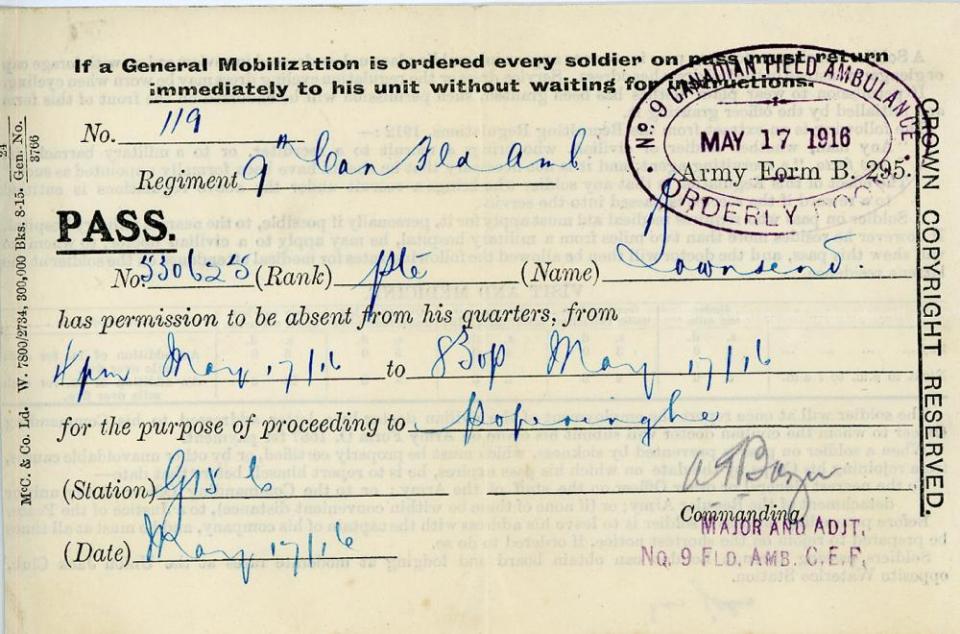 If a General Mobilization is ordered every soldier on pass must return
immediately to his unit without waiting for instructions.
No. 119
Regiment 9th Can Fld Amb
No. 9 CANADIAN FIELD AMBULANCE
MAY 17 1916
ORDERLY
Army Form B. 295.
PASS.
No. 530623 (Rank) Pte (Name) Townsend
has permission to be absent from his quarters, from
4 pm May 17/16 to 830p May 17/16
for the purpose of proceeding to Poperinghe
(Station)
Commanding
MAJOR AND ADJT.
(Date) May 17/16
NO. 9 FLD. AMB. C.E.F.
CROWN COPYRIGHT RESERVED.
McC. & Co. Ltd. W. 7800/2734, 300,000 Bks. 8-15. Gen. No.
3766